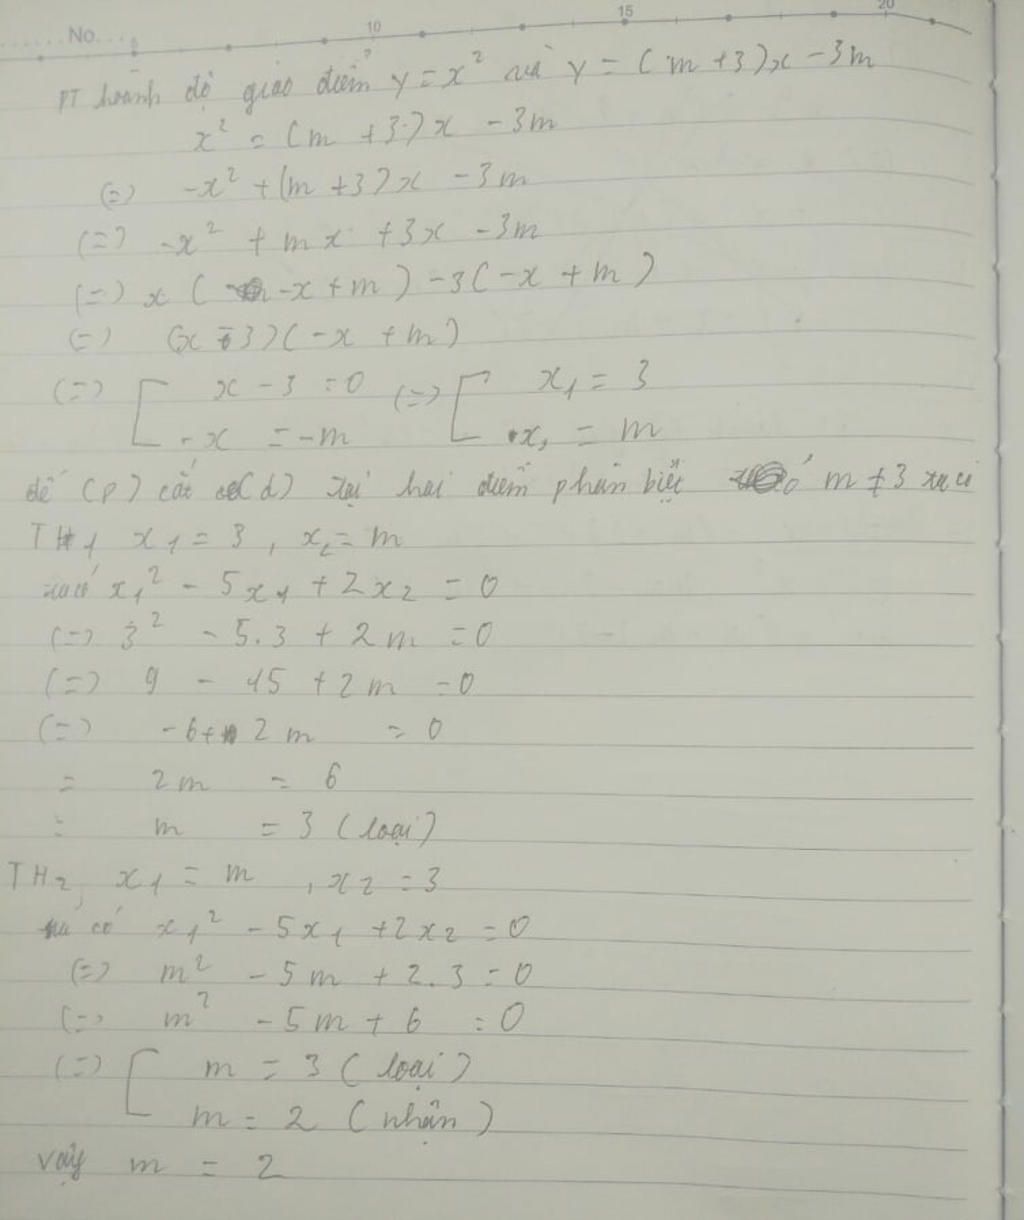 No.
10
15
20
PT hoành độ giao điểm y = x² và y = (m+3)x - 3m
x² = (m + 3)x - 3m
(=) -x² + (m + 3)x - 3m
(=) -x² + mx + 3x - 3m
(=) x ( -x + m ) - 3(-x + m )
(=) (x - 3)(-x + m)
(=) [ x - 3 = 0 (=) [ x₁ = 3
-x = -m x₂ = m
để (P) cắt (d) tại hai điểm phân biệt m ≠ 3 ta có
TH1 x₁ = 3 , x₂ = m
ta có x₁² - 5x₁ + 2x₂ = 0
(=) 3² - 5.3 + 2m = 0
(=) 9 - 15 + 2m = 0
(=) -6 + 2m = 0
= 2m = 6
= m = 3 (loại)
TH2 x₁ = m , x₂ = 3
ta có x₁² - 5x₁ + 2x₂ = 0
(=) m² - 5m + 2.3 = 0
(=) m² - 5m + 6 = 0
(=) [ m = 3 ( loại )
m = 2 ( nhận )
vậy m = 2